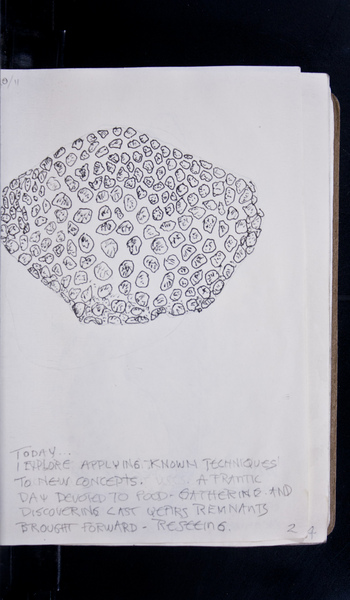 0/11
TODAY...
I EXPLORE APPLYING 'KNOWN TECHNIQUES'
TO NEW CONCEPTS. A FRANTIC
DAY DEVOTED TO FOOD-GATHERING AND
DISCOVERING LAST YEARS REMNANTS
BROUGHT FORWARD - RESEEING.
2 9.